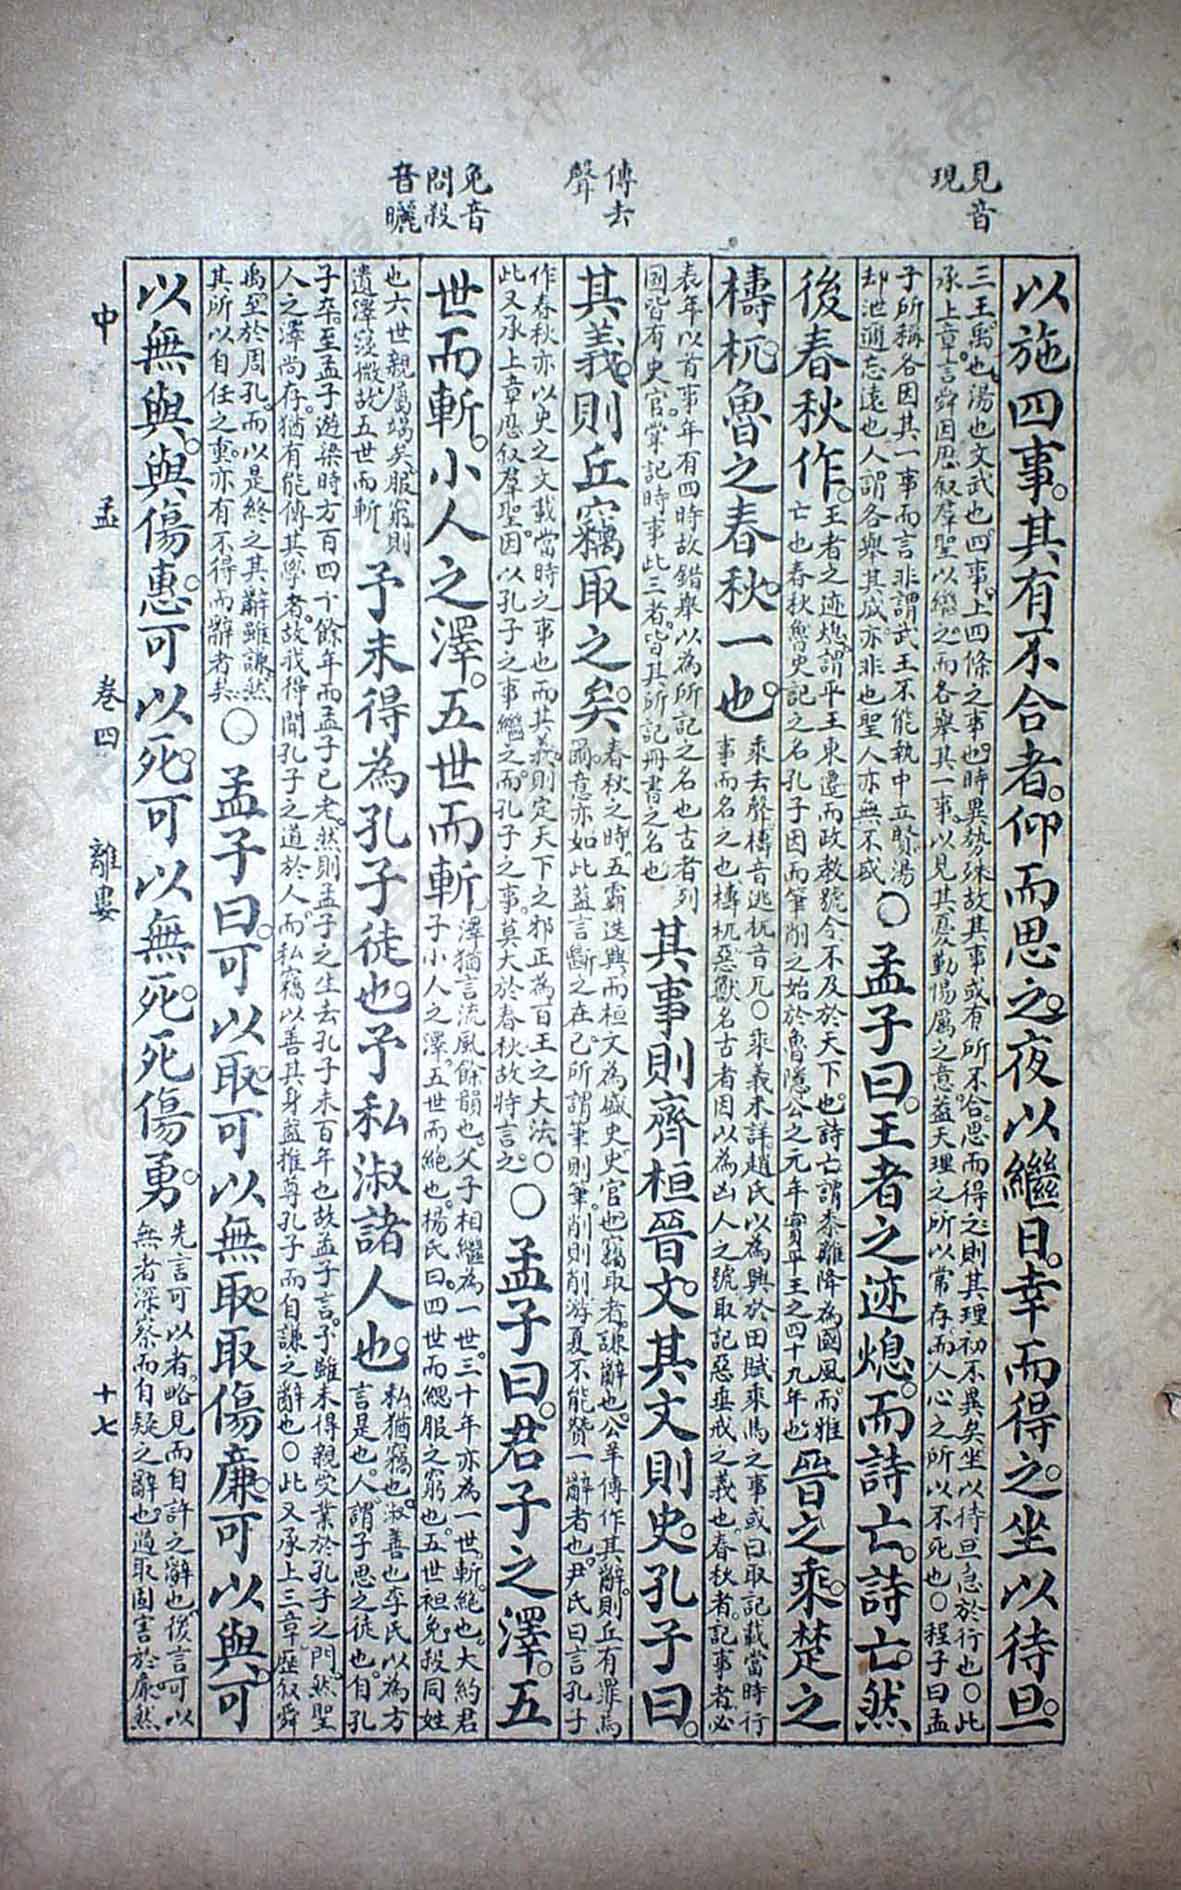 見音
現
傳去
聲
免音
問殺
音曬
以施四事。其有不合者。仰而思之。夜以繼日。幸而得之。坐以待旦。
三王。禹也。湯也。文武也。四事。上四條之事也。時異勢殊故其事或有所不合。思而得之。則其理初不異矣。坐以待旦。急於行也。〇此
承上章。言舜因歷叙群聖以繼之。而各舉其一事。以見其憂勤惕厲之意。蓋天理之所以常存而人心之所以不死也〇程子曰孟
子所稱各因其一事而言非謂武王不能執中立賢湯
却泄邇忘遠也人謂各舉其盛。亦非也聖人亦無不盛
〇孟子曰。王者之迹熄。而詩亡。詩亡。然
後春秋作。
王者之迹熄。謂平王東遷而政教號令不及於天下也。詩亡謂黍離降為國風。而雅
亡也春秋魯史記之名孔子因而筆削之始於魯隱公之元年實平王之四十九年也
晉之乘。楚之
檮杌。魯之春秋。一也。
乘去聲檮音逃杌音兀〇乘義未詳。趙氏以為興於田賦乘馬之事或曰取記載當時行
事而名之也檮杌惡獸名古者因以為凶人之號取記惡垂戒之義也。春秋者。記事者必
表年以首事年有四時故錯舉以為所記之名也古者列
國皆有史官。掌記時事此三者。皆其所記冊書之名也
其事則齊桓晉文。其文則史。孔子曰。
其義。則丘竊取之矣。
春秋之時。五霸迭興。而桓文為盛史。史官也。竊取者。謙辭也。公羊傳作其辭。則丘有罪焉
爾。意亦如此蓋言斷之在己。所謂筆則筆。削則削。游夏不能贊一辭者也。尹氏曰言孔子
作春秋亦以史之文載當時之事也而其義。則定天下之邪正為百王之大法。〇
此又承上章歷叙群聖。因以孔子之事繼之。而孔子之事。莫大於春秋故特言之。
〇孟子曰。君子之澤。五
世而斬。小人之澤。五世而斬
澤猶言流風餘韻也。父子相繼為一世。三十年亦為一世。斬。絕也。大約君
子小人之澤。五世而絕也。楊氏曰。四世而緦服之窮也。五世袒免。殺同姓
也六世親屬竭矣。服窮則
遺澤寖微故五世而斬
予未得為孔子徒也。予私淑諸人也。
私猶竊也。淑善也李氏以為方
言是也。人。謂子思之徒也。自孔
子卒。至孟子遊梁時方百四十餘年而孟子已老。然則孟子之生去孔子未百年也故孟子言。予雖未得親受業於孔子之門。然聖
人之澤尚存。猶有能傳其學者。故我得聞孔子之道於人。而私竊以善其身蓋推尊孔子而自謙之辭也〇此又承上三章。歷叙舜
禹至於周孔。而以是終之其辭雖謙。然
其所以自任之重。亦有不得而辭者矣
〇孟子曰。可以取。可以無取。取傷廉。可以與。可
以無與。與傷惠。可以死。可以無死。死傷勇。
先言可以者。略見而自許之辭也。後言可以
無者深察而自疑之辭也。過取固害於廉然
中 孟 卷四 離婁 十七